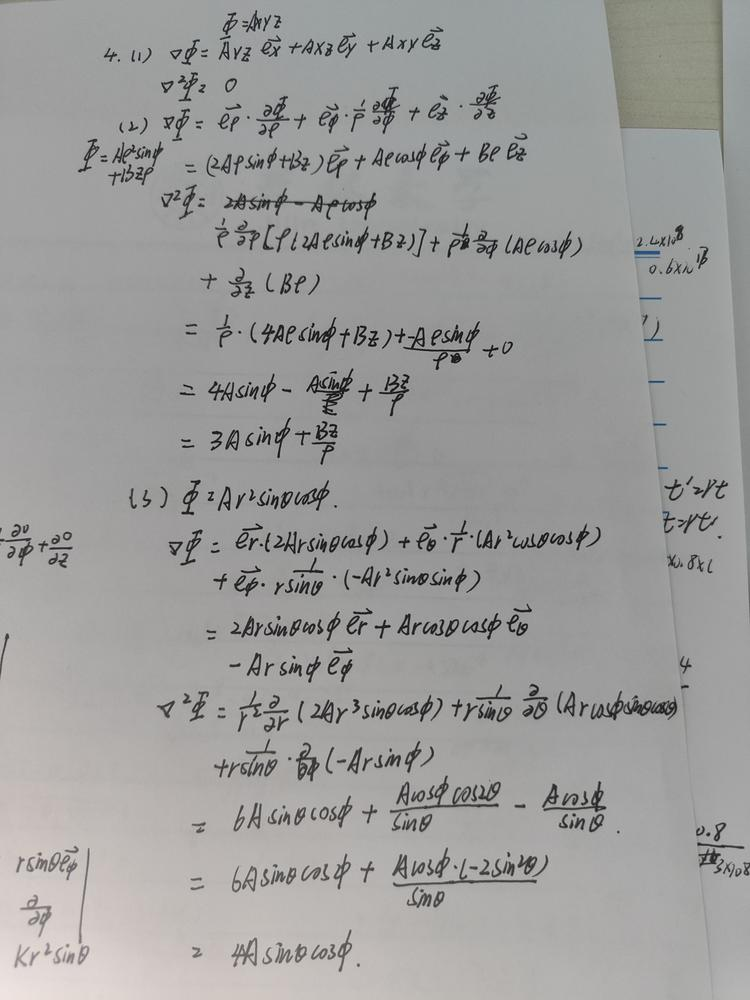 Φ=Axyz
4. (1) ∇Φ = Ayz e⃗x + Axz e⃗y + Axy e⃗z
∇²Φ = 0
(2) ∇Φ = e⃗ρ · ∂Φ/∂ρ + e⃗φ · 1/ρ ∂Φ/∂φ + e⃗z · ∂Φ/∂z
Φ = Aρ²sinφ
+Bzρ
= (2Aρsinφ+Bz) e⃗ρ + Aρcosφ e⃗φ + Bρ e⃗z
∇²Φ = 2Asinφ - Aρcosφ
1/ρ ∂/∂ρ [ρ(2Aρsinφ+Bz)] + 1/ρ ∂/∂φ (Aρcosφ)
+ ∂/∂z (Bρ)
= 1/ρ · (4Aρsinφ+Bz) + -Aρsinφ/ρ + 0
= 4Asinφ - Asinφ + Bz/ρ
= 3Asinφ + Bz/ρ
(3) Φ = Ar²sinθcosφ.
∇Φ = e⃗r·(2Arsinθcosφ) + e⃗θ · 1/r · (Ar²cosθcosφ)
+ e⃗φ · 1/rsinθ · (-Ar²sinθsinφ)
= 2Arsinθcosφ e⃗r + Arcosθcosφ e⃗θ
- Arsinφ e⃗φ
∇²Φ = 1/r² ∂/∂r (2Ar³sinθcosφ) + 1/rsinθ ∂/∂θ (Arcosφsinθcosθ)
+ 1/rsinθ · ∂/∂φ (-Arsinφ)
= 6Asinθcosφ + Acosφcos2θ/sinθ - Acosφ/sinθ.
= 6Asinθcosφ + Acosφ·(-2sin²θ)/sinθ
= 4Asinθcosφ.
∂φ + ∂0/∂z
rsinθe⃗φ
∂/∂φ
Kr²sinθ
2.4×10⁸
0.6×10
t'=rt
t=rt'.
×0.8×
4
0.8
3×10⁸